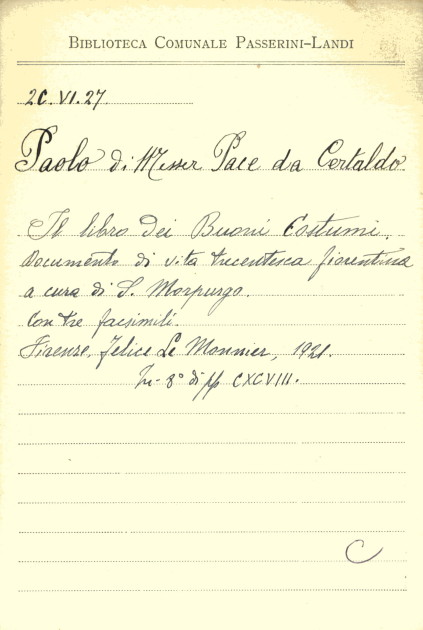 BIBLIOTECA COMUNALE PASSERINI-LANDI
2C.VI.27.
Paolo di Messer Pace da Certaldo
Il libro dei Buoni Costumi.
Documento di vita trecentesca fiorentina
a cura di S. Morpurgo.
Con tre facsimili.
Firenze, Felice Le Monnier, 1921.
In-8° di pp CXCVIII.
C